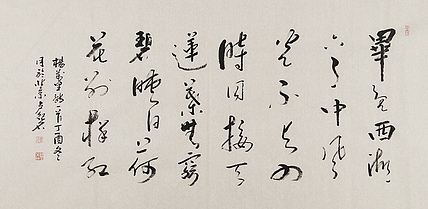 畢竟西湖
六月中風
光不與四
時同接天
蓮葉無窮
碧映日荷
花別樣紅
楊萬里詩一首丁酉冬
月於北京